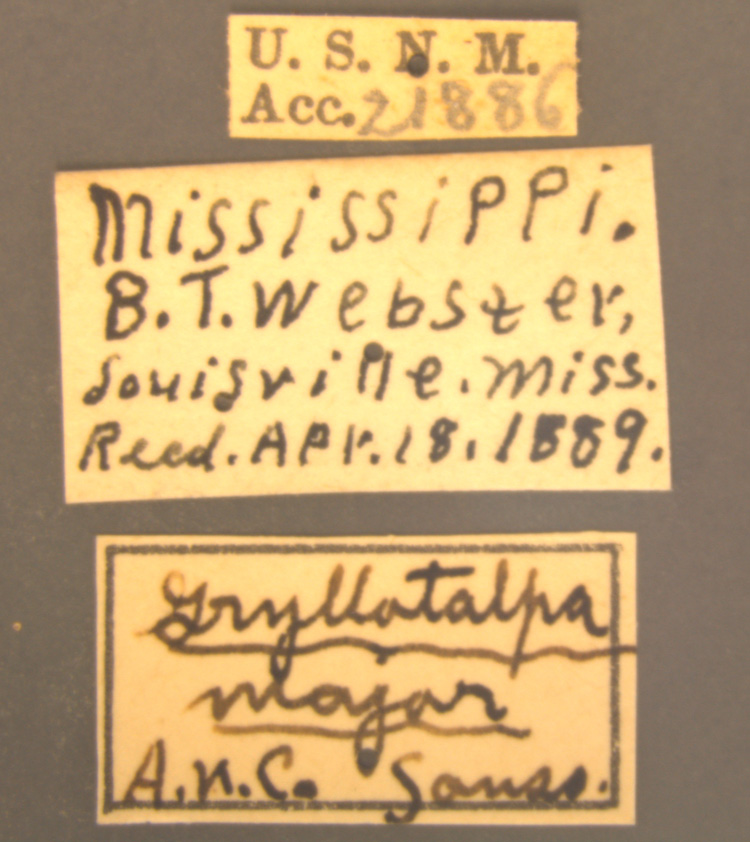 U. S. N. M.
Acc. 21886
Mississippi.
B. T. Webster,
Louisville. Miss.
Recd. Apr. 18. 1889.
Gryllotalpa
major
A.N.C. Sauss.